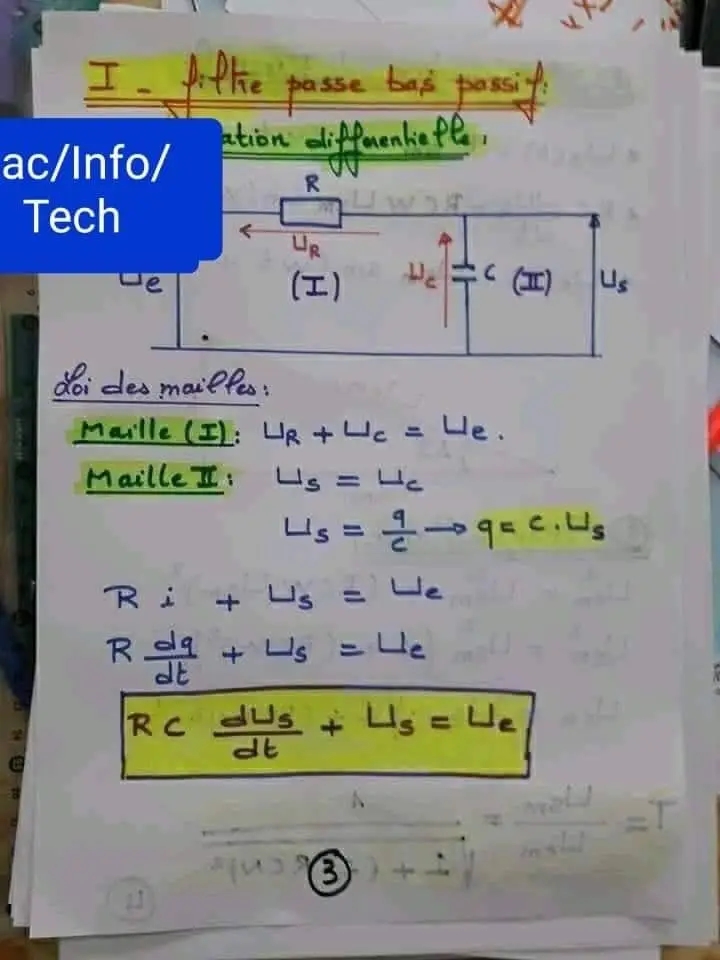 I - filtre passe bas passif:
ation differentielle:
ac/Info/
Tech
R
UR
Ue
(I)
Uc
C
(II)
Us
Loi des mailles:
Maille (I): UR + Uc = Ue.
Maille II: Us = Uc
Us = q/c → q = c. Us
R i + Us = Ue
R dq/dt + Us = Ue
RC dUs/dt + Us = Ue
3